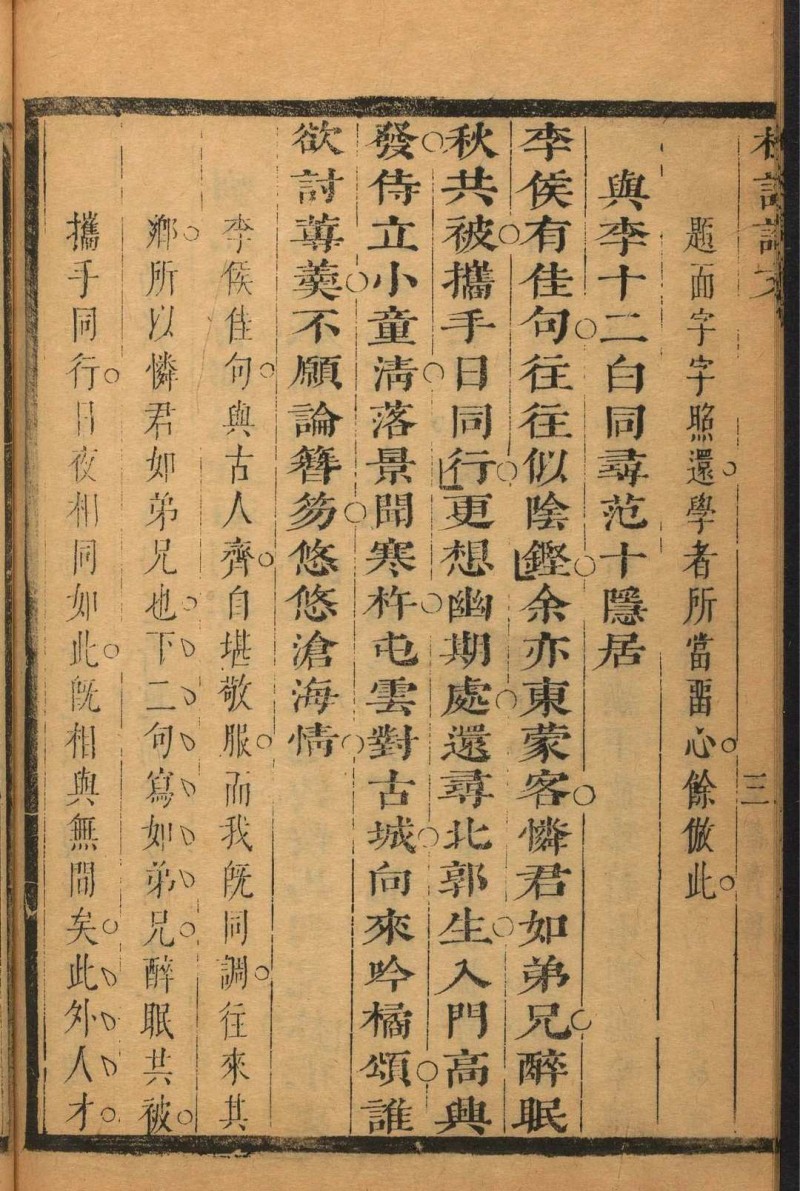 三
題面字字照還學者所當畱心餘倣此
與李十二白同尋范十隱居
李侯有佳句往往似陰鏗余亦東蒙客憐君如弟兄醉眠
秋共被攜手日同行更想幽期處還尋北郭生入門高興
發侍立小童淸落景聞寒杵屯雲對古城向來吟橘頌誰
欲討蓴羮不願論簪笏悠悠滄海情
李侯佳句與古人齊自堪敬服而我旣同調往來其
鄉所以憐君如弟兄也下二句寫如弟兄醉眠共被
攜手同行日夜相同如此旣相與無間矣此外人才